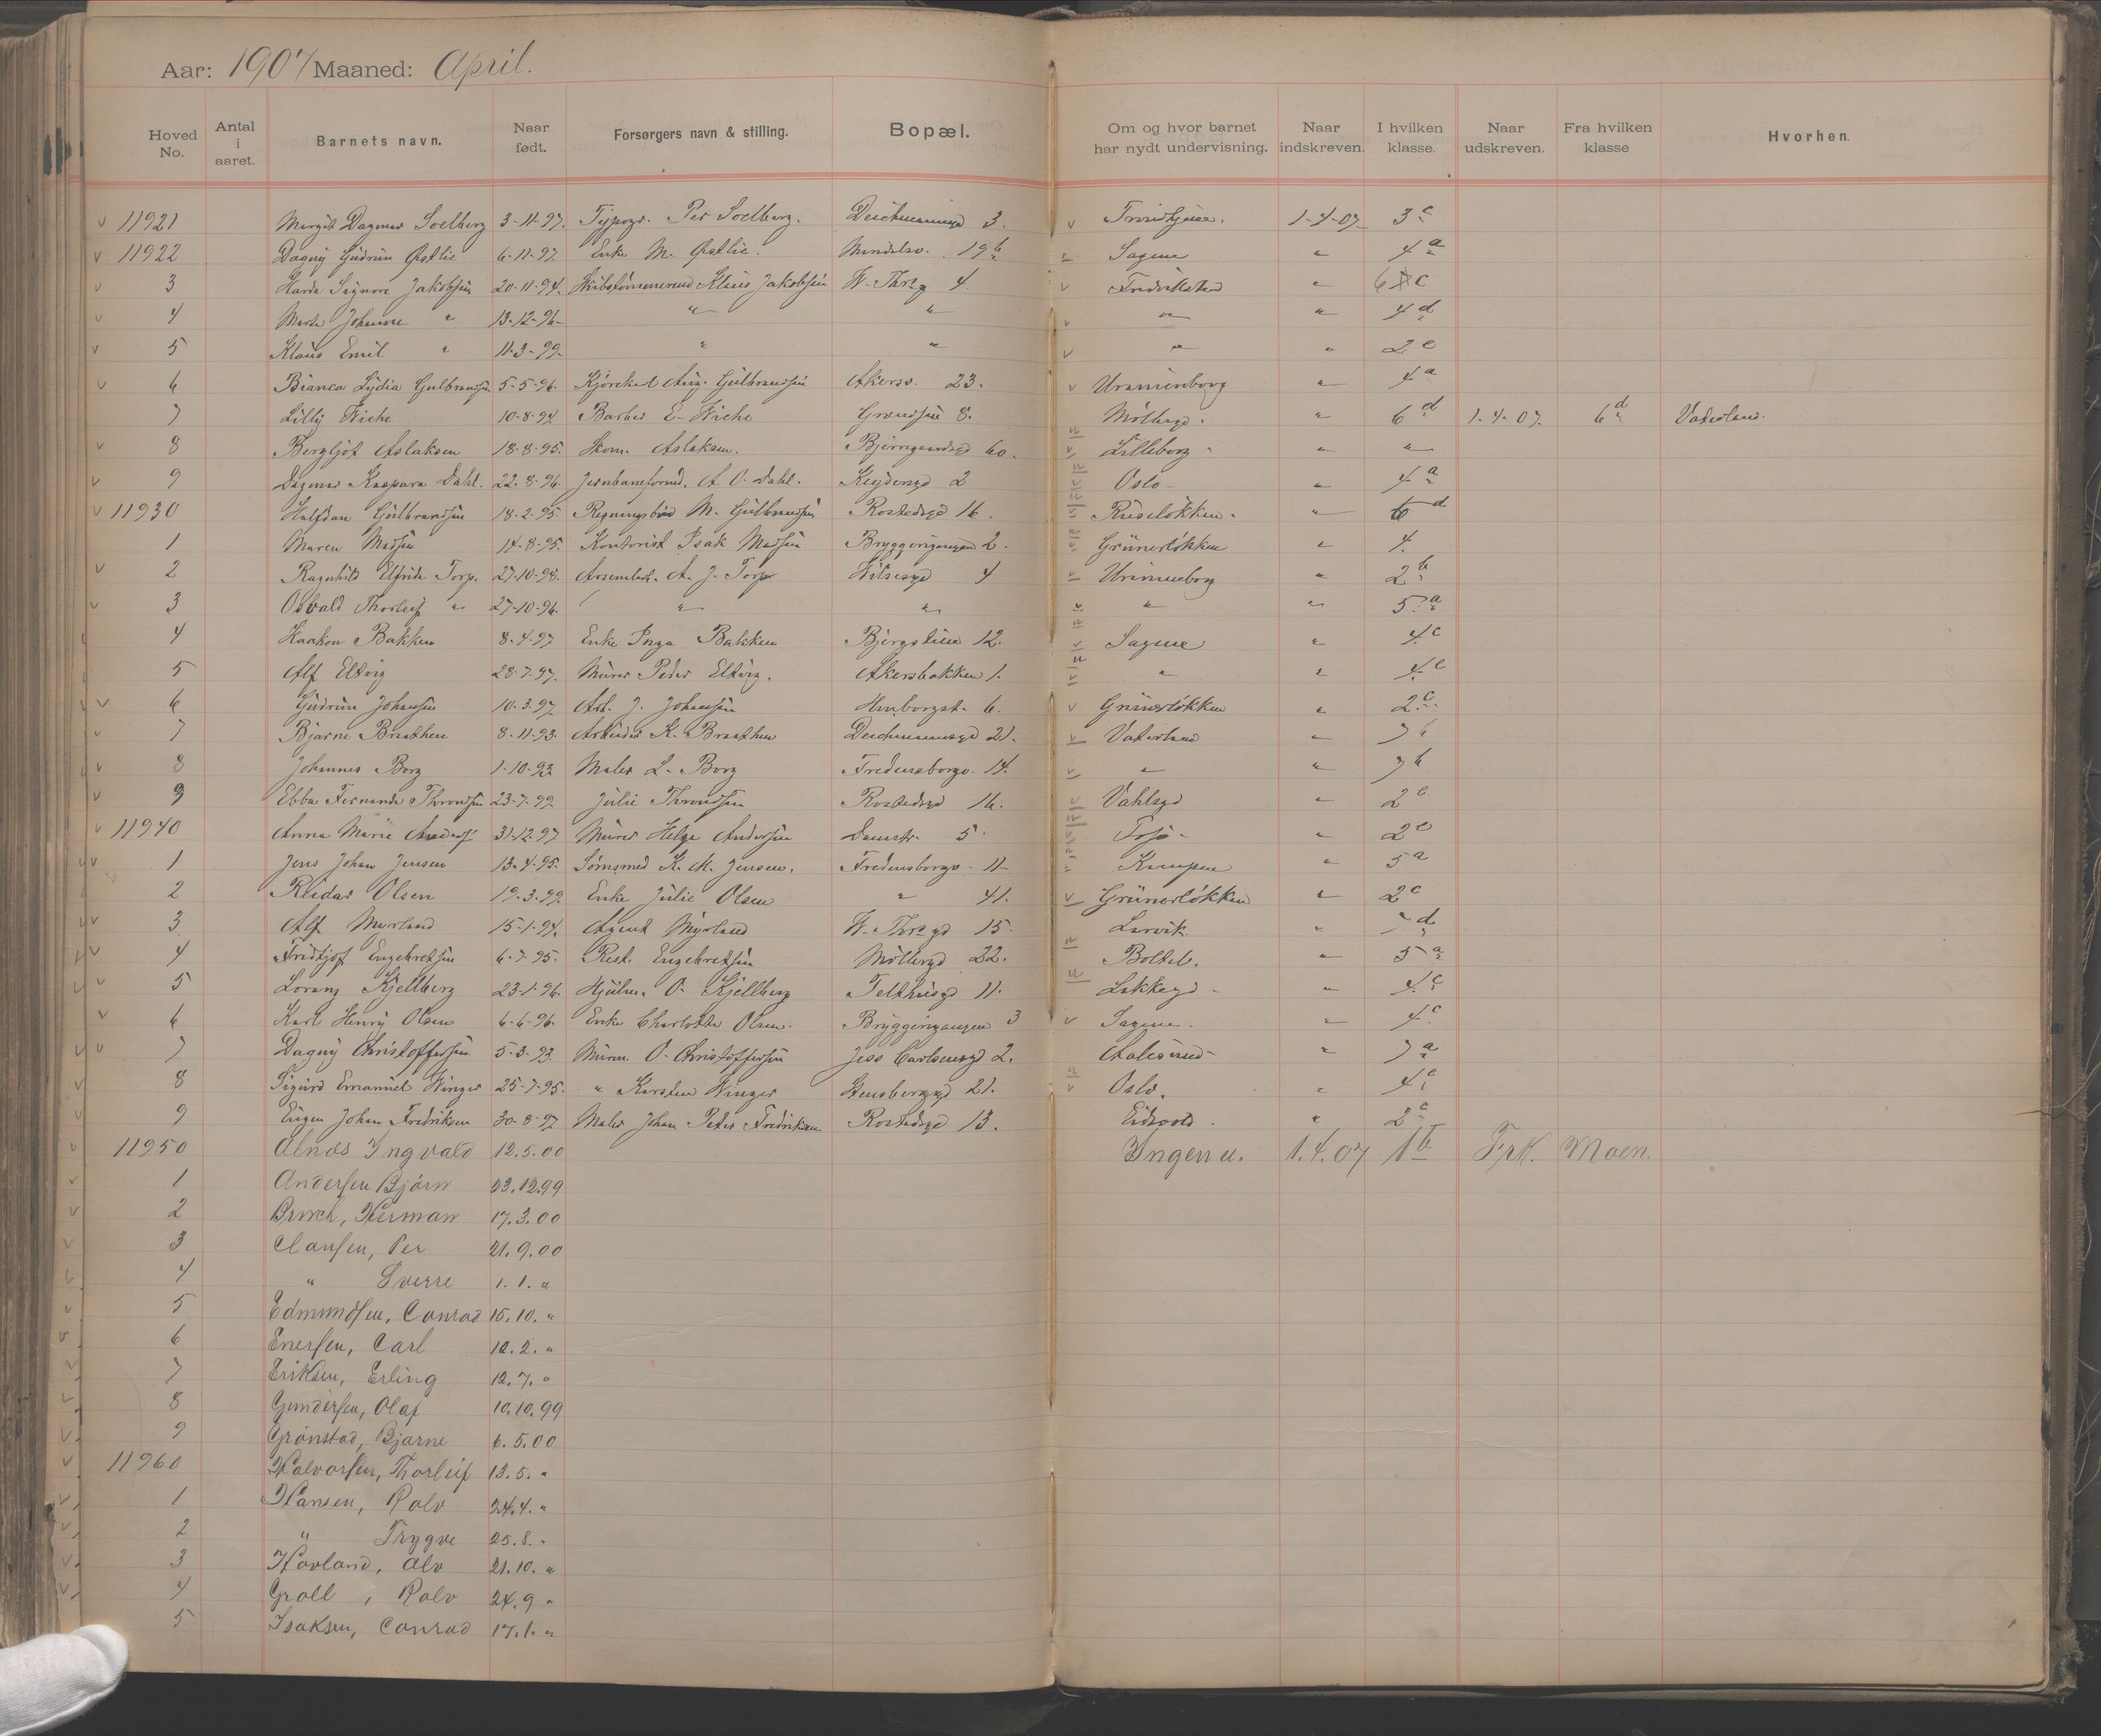 Aar: 1907 Maaned: April.
Hoved No. Antal i aaret. Barnets navn. Naar født. Forsørgers navn & stilling. Bopæl. Om og hvor barnet har nydt undervisning. Naar indskreven. I hvilken klasse. Naar udskreven. Fra hvilken klasse Hvorhen.
v 11921 Margit Dagmar Soelberg 3-11-97. Typogr. Per Soelberg. 3. v 1-4-07 3 c
v 11922 Dagny Gudrun Østlie 6-11-97 Enke M. Østlie. 19 b Sagene " 4 a
v 3 Signora Jakobsen 20-11-94. Klaus Jakobsen 4. v Fredrikstad " 6 c
v 4 Johanne " 13-12-96 " " v " " 4 d
v 5 Klaus Emil " 11-3-99. " " v " " 2 c
v 6 Bianca Lydia Gulbrandsen 5-5-96. Aug. Gulbrandsen Akersv. 23. v Uranienborg " 4 a
7 Lilly Wiche 10-8-94 Barber E. Wiche 8. Møllergd. " 6 d 1-4-07. 6 d Vaterland.
v 8 Bergljot Aslaksen 18-8-95. Skom. Aslaksen. 60. v Lilleborg " "
v 9 Dagmar Kaspara Dahl. 22-8-96. A. O. Dahl. 2 Oslo " 4 a
v 11930 Halfdan Gulbrandsen 18-2-95 M. Gulbrandsen Rostedsgd 16. Ruseløkken. " 6 d
1 Maren Madsen 14-8-95. Kontorist Isak Madsen Bryggerigangen 2. Grünerløkken " 4.
v 2 Ragnhild Elfride Torp. 27-10-98. A. J. Torp 4 Uranienborg " 2 b
v 3 Osvald Thorleif " 27-10-96. " " " " 5 a
4 Haakon Bakken 8-4-97 Enke Inga Bakken Bjergstien 12. Sagene " 4 c
5 Alf Eltvig 28-7-97. Murer Peder Eltvig. Akersbakken 1. " " 4 c
v 6 Gudrun Johansen 10-3-97 Arb. J. Johansen 6. v Grünerløkken " 2 c
v 7 Bjarne Braathen 8-11-93. Arbeider K. Braathen Deichmannsgd 21. Vaterland " 7 b
v 8 Johannes Borg 1-10-93 Maler L. Borg Fredensborgv. 14. " " 7 b
v 9 Ebba Fernanda Throndsen 23-7-99. Julie Throndsen Rostedsgd 16. Vahlsgd " 2 c
v 11940 Anna Marie 31-12-97 Murer Helge Andersen Damstr. 5. " 2 c
v 1 Jens Johan Jensen 13-4-95. K. M. Jensen. Fredensborgv. 11 Kampen " 5 a
2 Reidar Olsen 19-3-99. Enke Julie Olsen " 41. v Grünerløkken " 2 c
v 3 Alf Myrland 15-1-94. Agent Myrland 15. Larvik " d
v 4 Fridtjof Engebretsen 6-7-95. Rest. Engebretsen Møllergd 22. Boltel. " 5 a
v 5 Lorang Kjellberg 23-1-96. O. Kjellberg Telthusgd 11. Lakkegd " 4 c
v 6 Karl Henry Olsen 6-6-96. Enke Charlotte Olsen. Bryggerigangen 3 v Sagene. " 4 c
v 7 Dagny Christoffersen 5-3-93. O. Christoffersen Jess Carlsensgd 2. Aalesund " 7 a
8 Sigurd Emanuel Winger 25-7-95. " Karsten Winger Stensberggd 21. v Oslo. " 4 c
9 Eugen Johan Fredriksen 30-8-97 Maler Johan Peter Fredriksen Rostedsgd 13. Eidsvold. " 2 c
11950 Alnæs Ingvald 12.5.00 Ingen u. 1.4.07 1 b Frk. Moen.
v 1 Andersen Bjørn 23.12.99
v 2 Bruch, Herman 17.3.00
v 3 Clausen, Per 21.9.00
4 " Sverre 1.1. "
v 5 Edmundsen, Conrad 15.10. "
v 6 Enersen, Carl 12.2. "
7 Eriksen, Erling 12.7. "
8 Gundersen, Olaf 10.10.99
v 9 Grønstad, Bjarne 6.5.00
v 11960 Halvorsen, Thorleif 13.5. "
v 1 Hansen, Rolv 24.4. "
v 2 " Trygve 25.8. "
v 3 Hovland, Alv 21.10. "
v 4 Groll, Rolv 24.9 "
5 Isaksen, Conrad 17.1. "